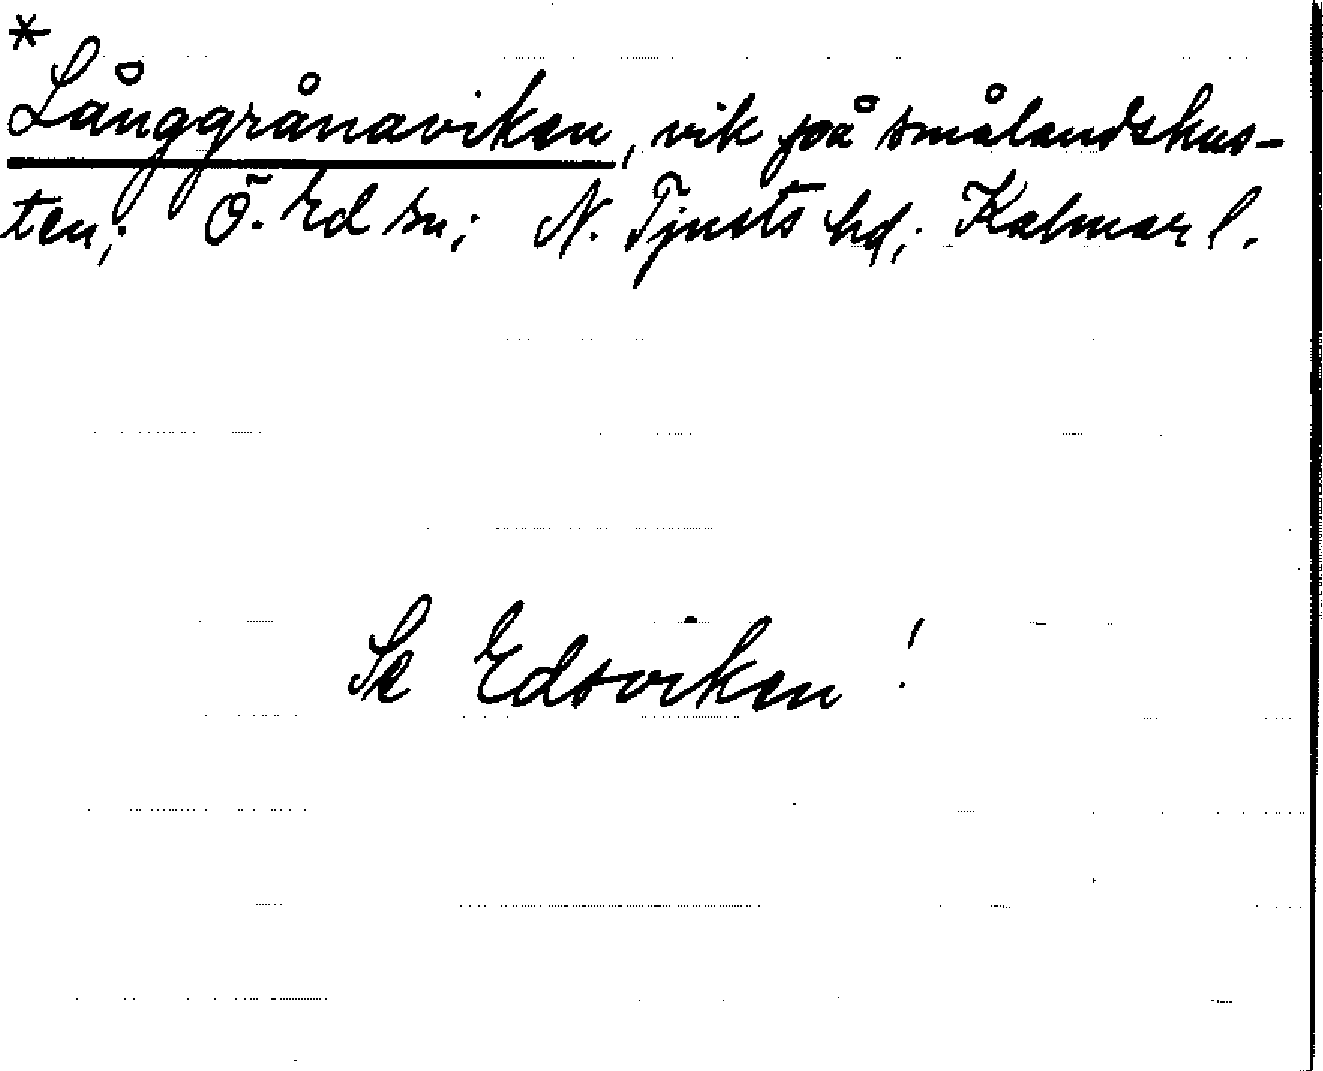 *
Långgrånaviken, vik på smålandskus-
ten; Ö. Ed sn; N. Tjusts hd; Kalmar l.
Se Edsviken!